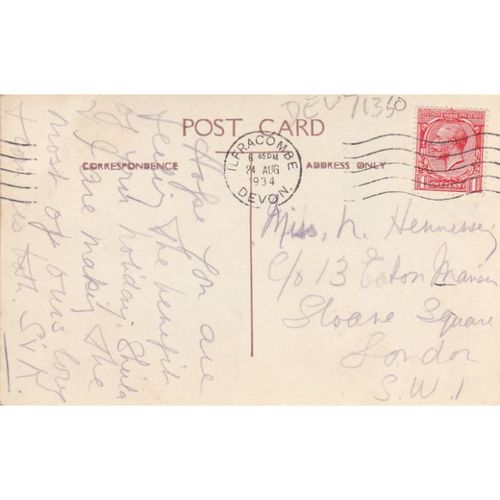 DEV71350
POST CARD
CORRESPONDENCE
ADDRESS ONLY
ILFRACOMBE
6 45PM
24 AUG
1934
DEVON.
Hope you are
feeling the benefit
of your holiday. Sheila
& I are making the
most of ours love
from us both. S.V.H.
Miss. N. Hennessey
C/o 13 Eaton Mansions
Sloane Square
London
S.W.1